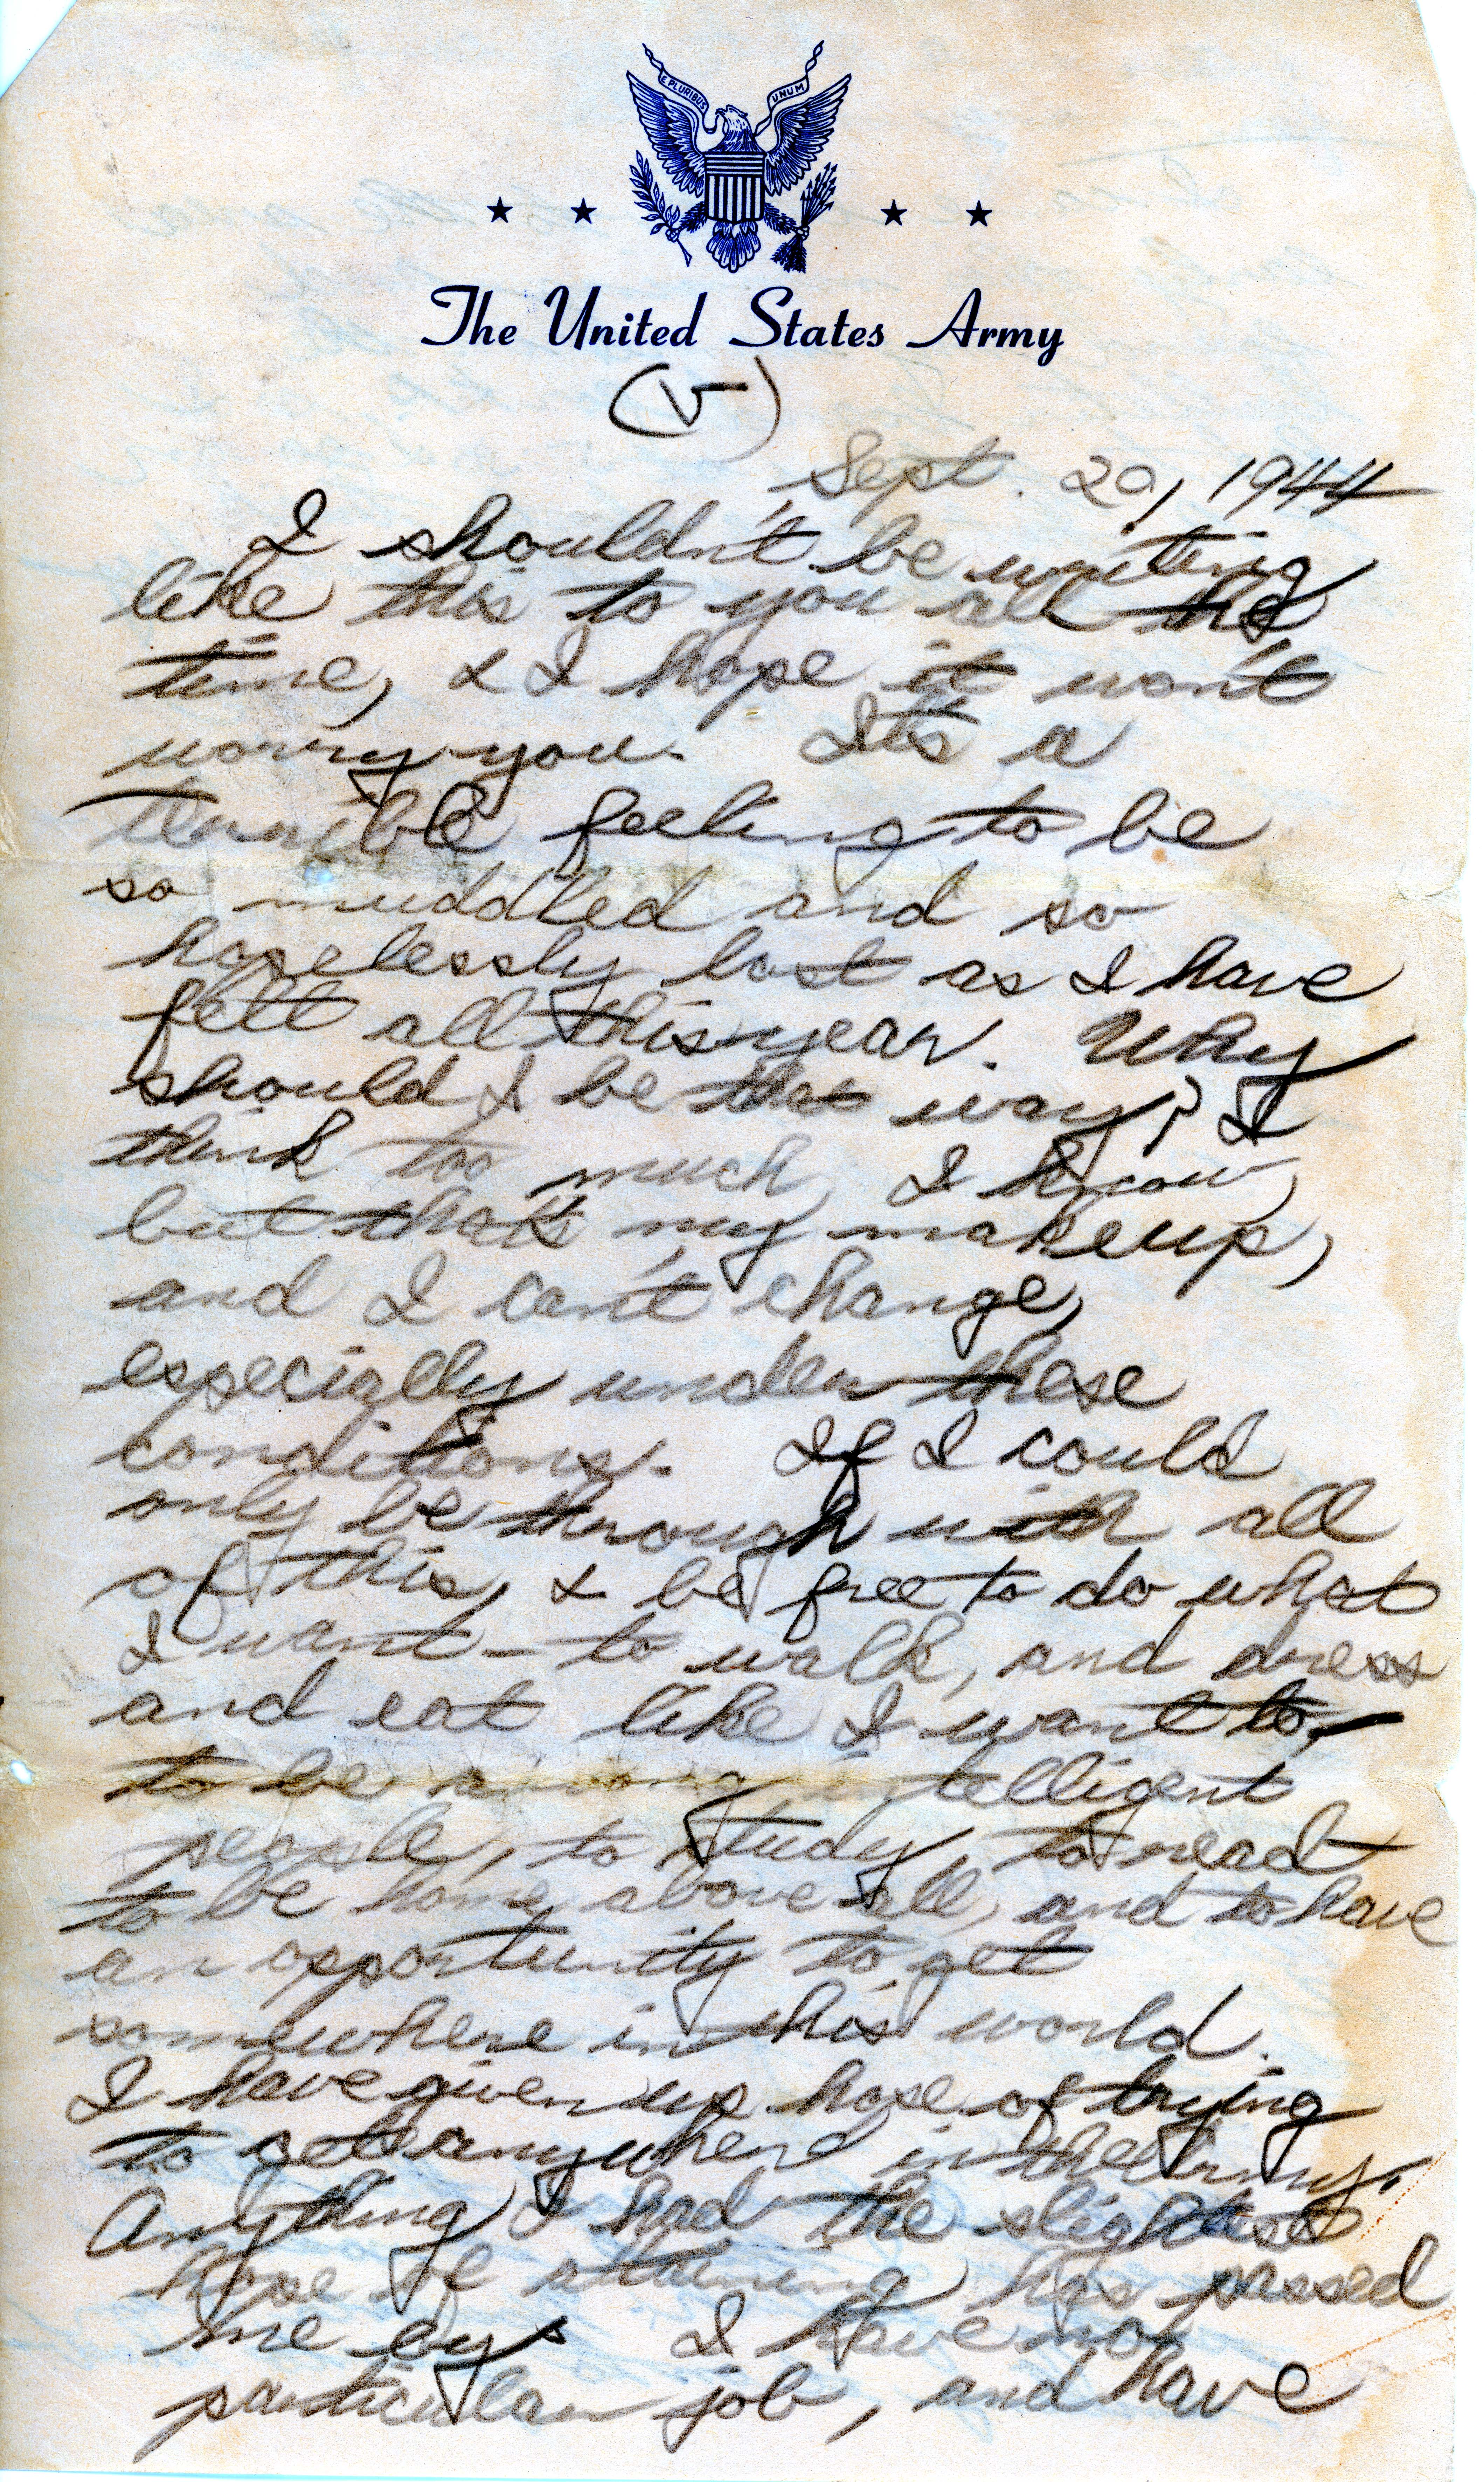 E PLURIBUS UNUM
The United States Army
(V)
Sept. 20, 1944
I shouldn't be writing
like this to you all the
time, & I hope it won't
worry you. It's a
terrible feeling to be
so muddled and so
hopelessly lost as I have
felt all this year. Why
should I be that way? I
think too much, I know,
but that's my makeup,
and I can't change,
especially under these
conditions. If I could
only be through with all
of this, & be free to do what
I want - to walk, and dress
and eat like I want to, -
to be among intelligent
people, to study, to read
to be home above all, and to have
an opportunity to get
somewhere in this world.
I have given up hope of trying
to get anywhere in the Army.
Anything I had the slightest
hope of attaining has passed
me by. I have no
particular job, and have